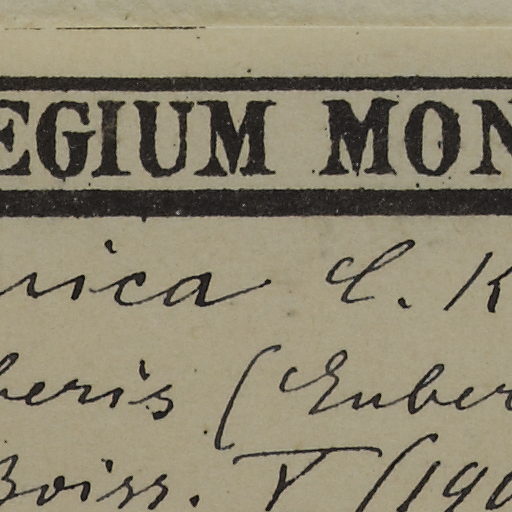 EGIUM MON
rica C. K
beris (Euber
Boiss. V (190